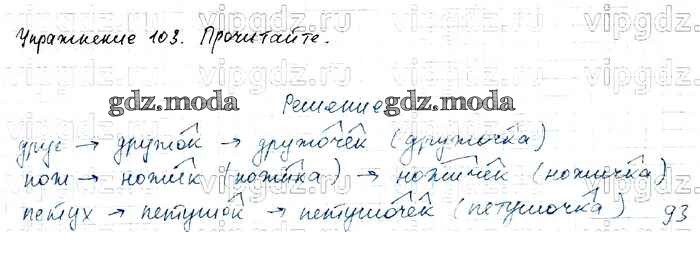 vipgdz.ru vipgdz.ru vipgdz.ru
Упражнение 103. Прочитайте.
vipgdz.ru vipgdz.ru vipgdz.ru vipgdz.ru
gdz.moda Решение gdz.moda
друг → дружок → дружочек (дружочка)
нож → ножик (ножика) → ножичек (ножичка)
петух → петушок → петушочек (петушочка) 93